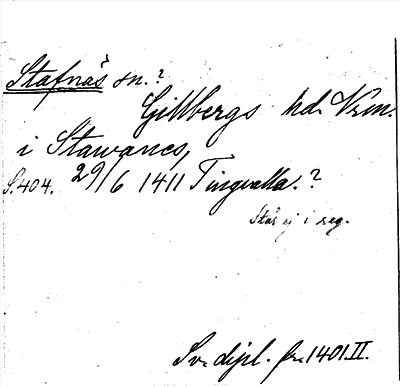 Stafnäs sn.?
Gillbergs hd. Vrm.
i Stawanes,
S. 404. 29/6 1411 Tingvalla.?
Står ej i reg.
Sv. dipl. fr. 1401. II.